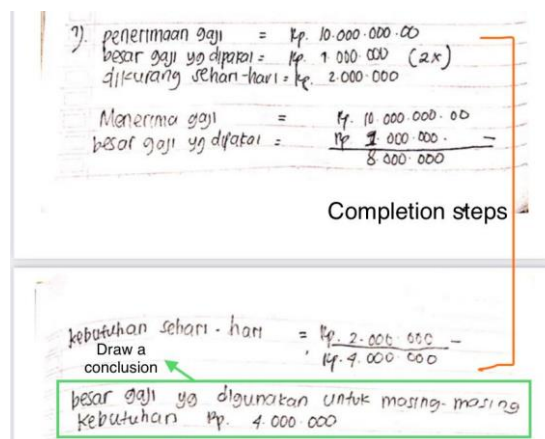 1). penerimaan gaji = Rp. 10.000.000.00
besar gaji yg dipakai = Rp. 1.000.000 (2x)
dikurang sehari-hari = Rp. 2.000.000
Menerima gaji = Rp. 10.000.000.00
besar gaji yg dipakai = Rp 1.000.000. -
8.000.000
Completion steps
kebutuhan sehari-hari = Rp. 2.000.000 -
Rp. 4.000.000
Draw a
conclusion
besar gaji yg digunakan untuk masing-masing
kebutuhan Rp. 4.000.000